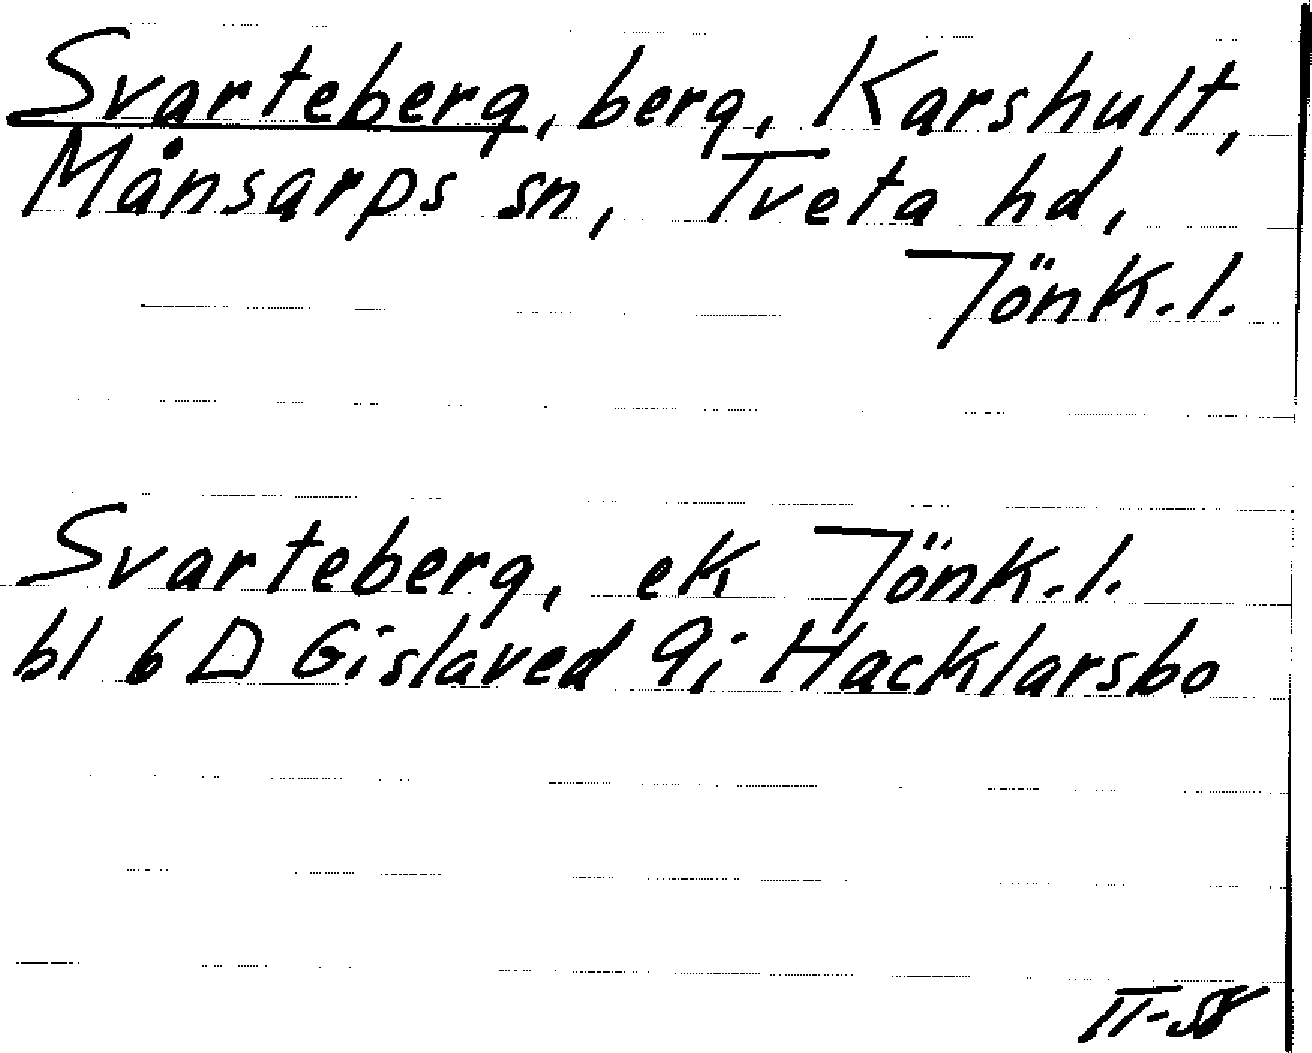 Svarteberg, berg, Karshult,
Månsarps sn, Tveta hd,
Jönk.l.
Svarteberg, ek Jönk.l.
bl 6 D Gislaved 9i Hacklarsbo